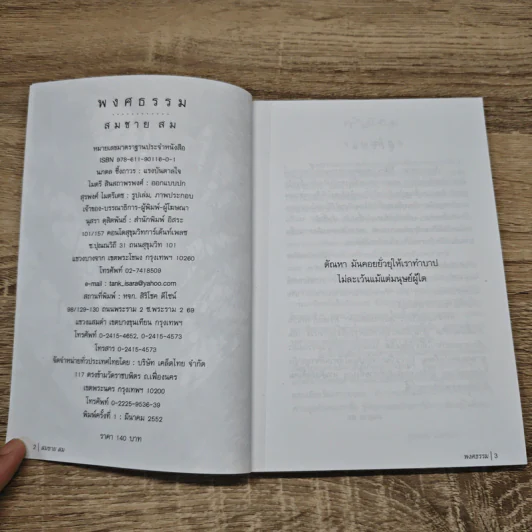 พงศธรรม
สมชาย สม
หมายเลขมาตราฐานประจำหนังสือ
ISBN 978-611-90116-0-1
นภดล ซึ่งถาวร : แรงบันดาลใจ
ไมตรี สินสถาพรพงศ์ : ออกแบบปก
สุรพงศ์ ไมตรีเดช : รูปเล่ม, ภาพประกอบ
เจ้าของ-บรรณาธิการ-ผู้พิมพ์-ผู้โฆษณา
นุสรา ดุสิตพันธ์ : สำนักพิมพ์ อิสระ
101/157 คอนโดสุขุมวิทการ์เด้นท์เพลซ
ซ.ปุณณวิถี 31 ถนนสุขุมวิท 101
แขวงบางจาก เขตพระโขนง กรุงเทพฯ 10260
โทรศัพท์ 02-7418509
e-mail : tank_isara@yahoo.com
สถานที่พิมพ์ : หจก. สิริโชค ดีไซน์
88/129-130 ถนนพระราม 2 ซ.พระราม 2 69
แขวงแสมดำ เขตบางขุนเทียน กรุงเทพฯ
โทรศัพท์ 0-2415-4652, 0-2415-4573
โทรสาร 0-2415-4573
จัดจำหน่ายทั่วประเทศไทยโดย : บริษัท เคล็ดไทย จำกัด
117 ตรงข้ามวัดราชบพิตร ถ.เฟื่องนคร
เขตพระนคร กรุงเทพฯ 10200
โทรศัพท์ 0-2225-9536-39
พิมพ์ครั้งที่ 1 : มีนาคม 2552
ราคา 140 บาท
2 | สมชาย สม
ตัณหา มันคอยยั่วยุให้เราทำบาป
ไม่ละเว้นแม้แต่มนุษย์ผู้ใด
พงศธรรม | 3